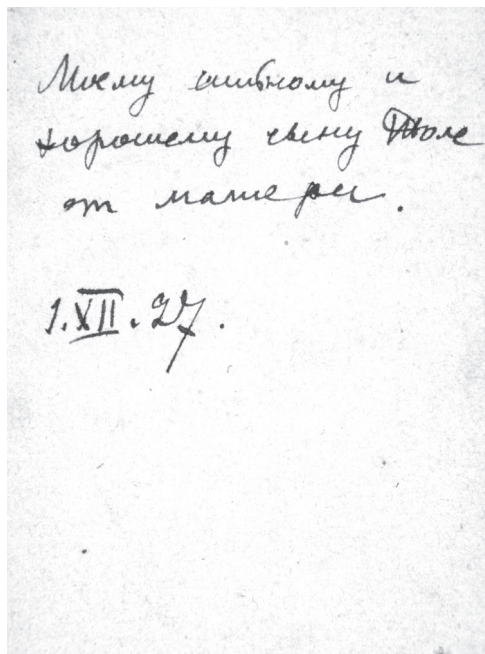 Моему сильному и
хорошему сыну Толе
от матери.
1.XII.27.